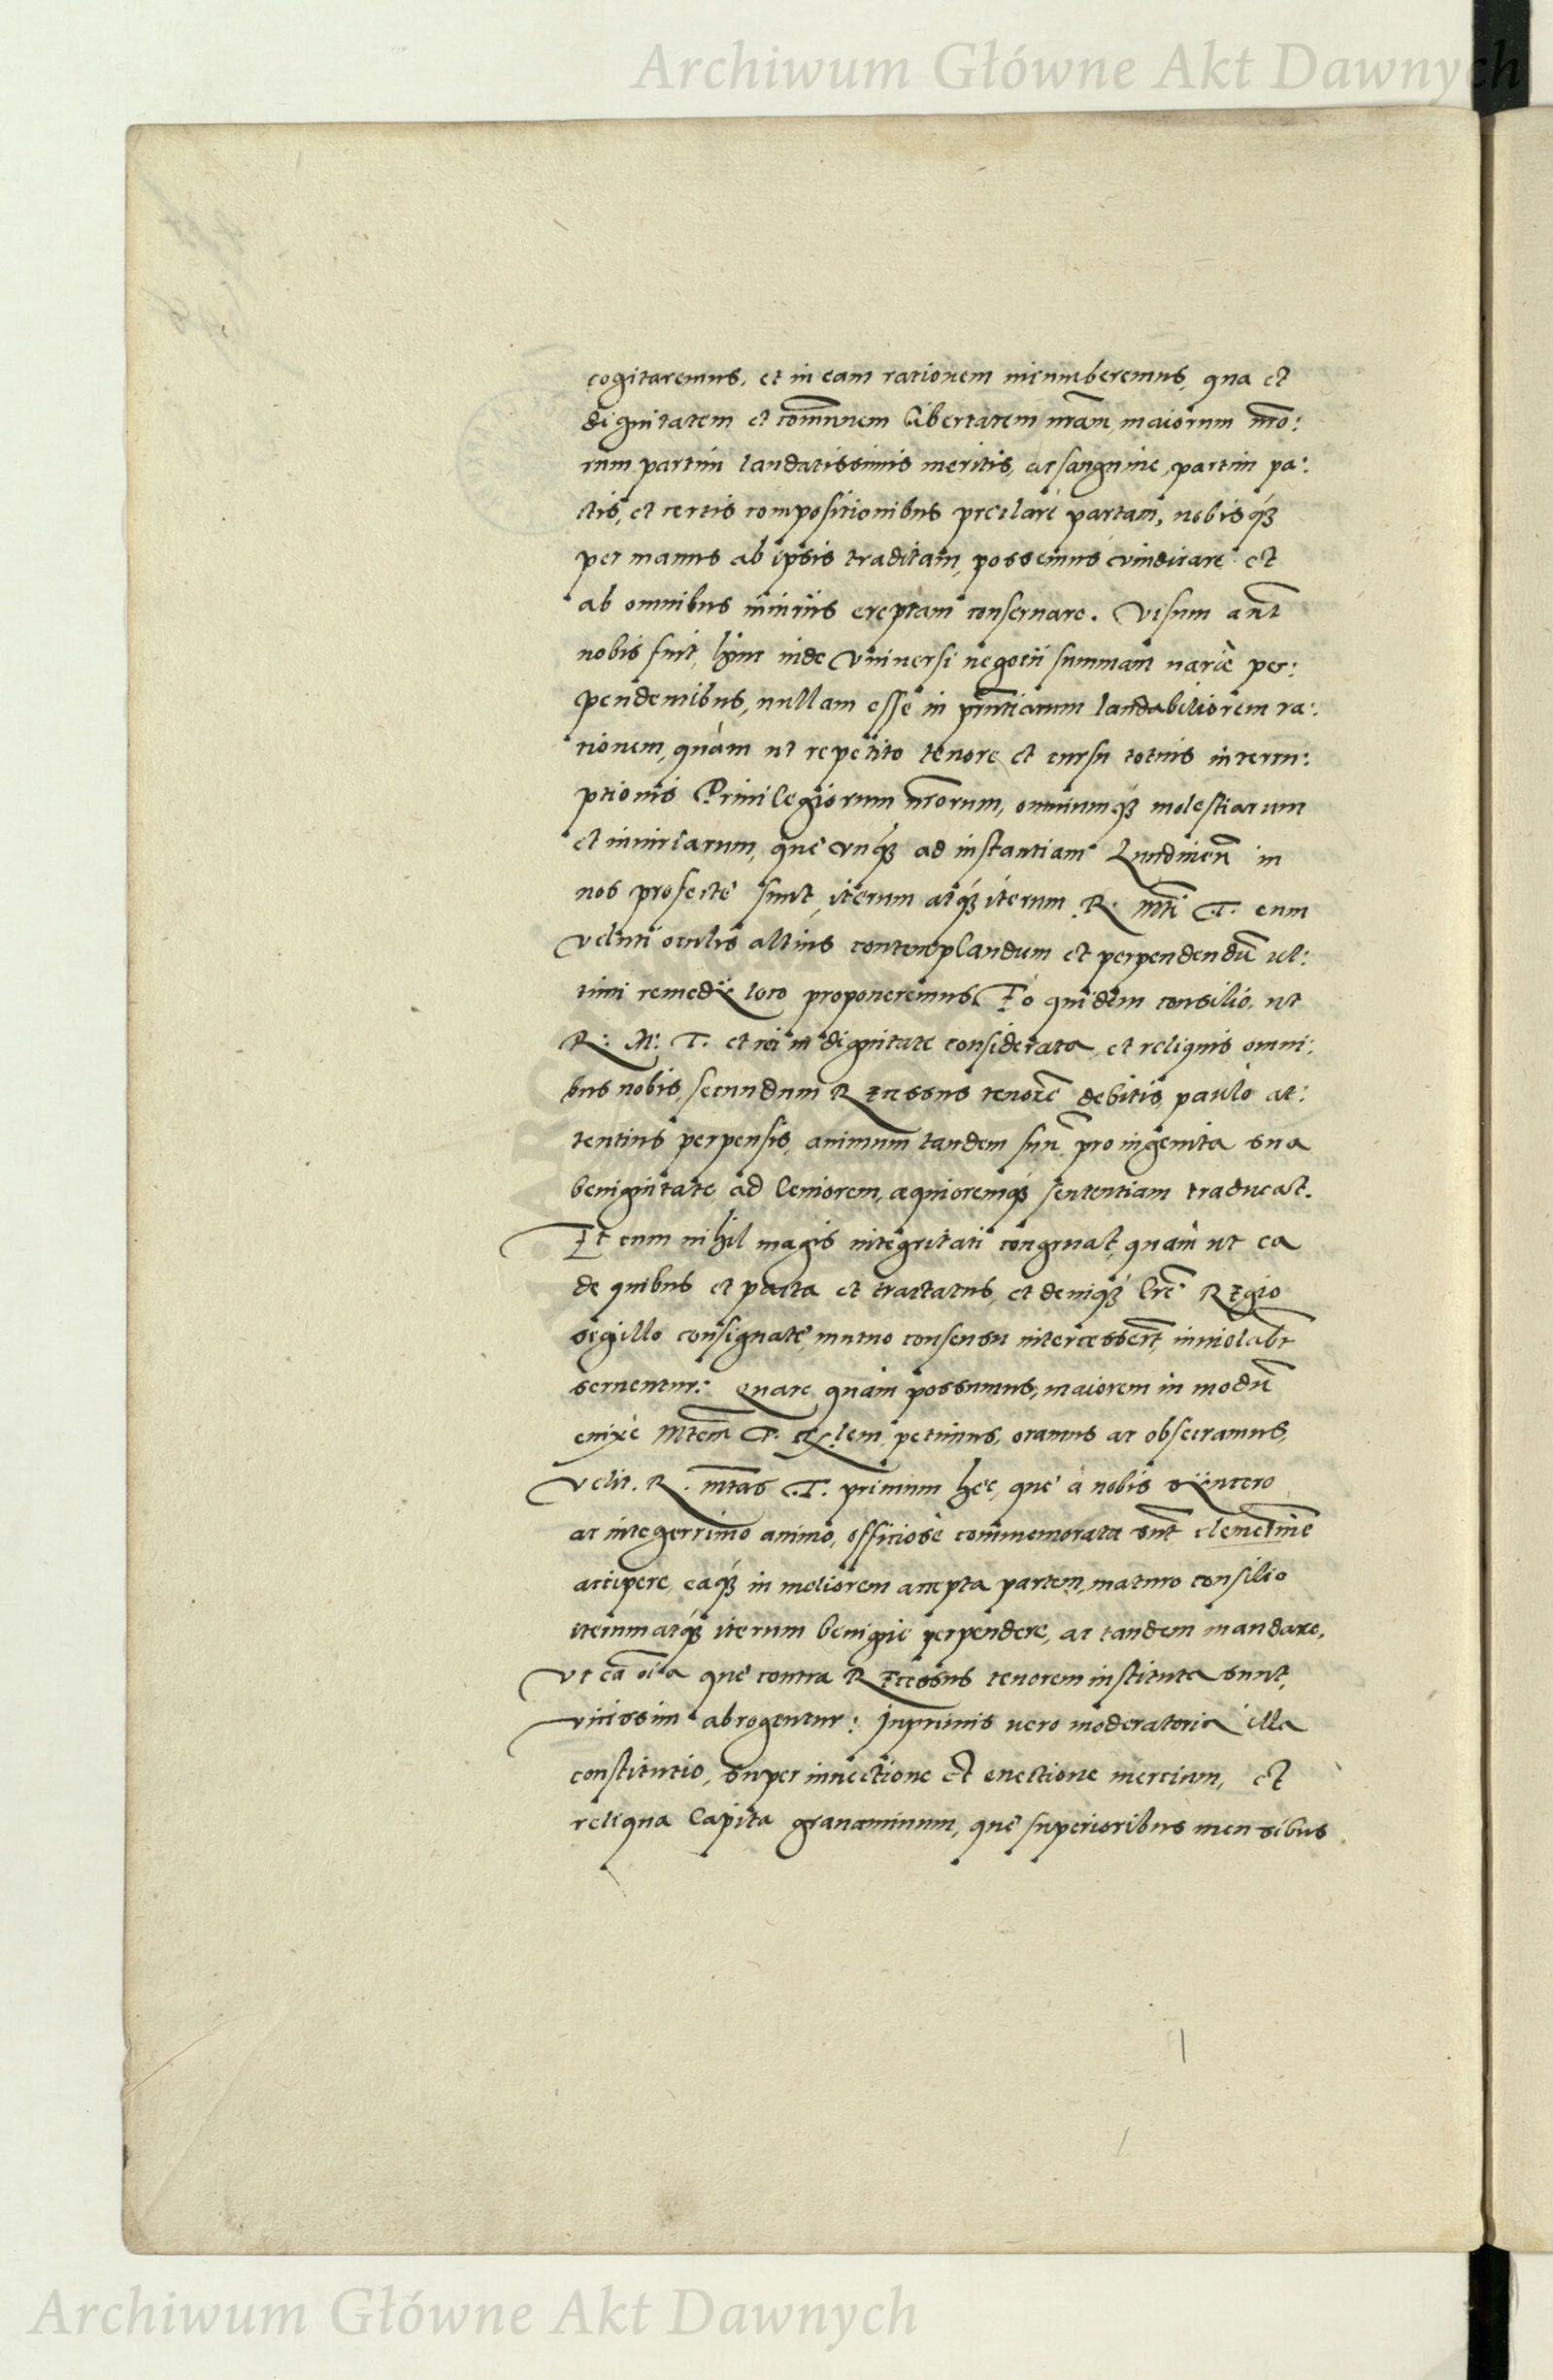 Archiwum Główne Akt Dawnych
cogitaremus, et in eam rationem incumberemus, qua et
dignitatem et com̄unem libertatem nr̄am, maiorum nr̄o:
rum partim laudatissimis meritis, ac sanguine, partim pa:
ctis, et certis compositionibus preclarè partam, nobisq́ꝫ
per manus ab ipsis traditam, possemus vindicare et
ab omnibus iniuriis ereptam conseruare. Visum aūt
nobis fuit, hinc inde vniuersi negotii summam variè per:
pendentibus, nullam esse in pn̄tiarum laudabiliorem ra:
tionem, quàm ut repetito tenore et cursu totius interru:
ptionis Priuilegiorum nr̄orum, omniumq́ꝫ molestiarum
et iniuriarum, quę vnq́ꝫ ad instantiam Lundineñ in
nos profectę sunt, iterum atq́ꝫ iterum R. Mti T. eum
veluti oculis altius contemplandum et perpendendū ul:
timi remedii loco proponeremus. Eo quidem consilio, ut
R: M: T. et rei indignitate considerata, et reliquis omni:
bus nobis, secundum Recessus tenorē debitis, paulò at:
tentius perpensis, animum tandem suū pro ingenita sua
benignitate, ad leniorem, aequioremq́ꝫ sententiam traducat.
Et cum nihil magis integritati congruat, quàm ut ea
de quibus et pacta et tractatus, et deniq́ꝫ lrē Regio
sigillo consignatę, mutuo consensu intercessert̄, inuiolabr̄
seruentur: Quare quàm possumus, maiorem in modū
enixè Mtem̄ T. R:lem petimus, oramus ac obsecramus,
Velit. R. Mtas T. primum hęc, quę à nobis syncero
ac integerrimo animo, officiosè commemorata sūt clemetīme
accipere, eaq́ꝫ in meliorem accepta partem, maturo consilio
iterum atq́ꝫ iterum benignè perpendere, ac tandem mandare,
Vt eā oīa quę contra Recessus tenorem instituta sunt,
vicissim abrogentur: Inprimis uero moderatoria illa
constitutio, super inuectione et euectione mercium, et
reliqua capita grauaminum, quę superioribus mensibus
Archiwum Główne Akt Dawnych